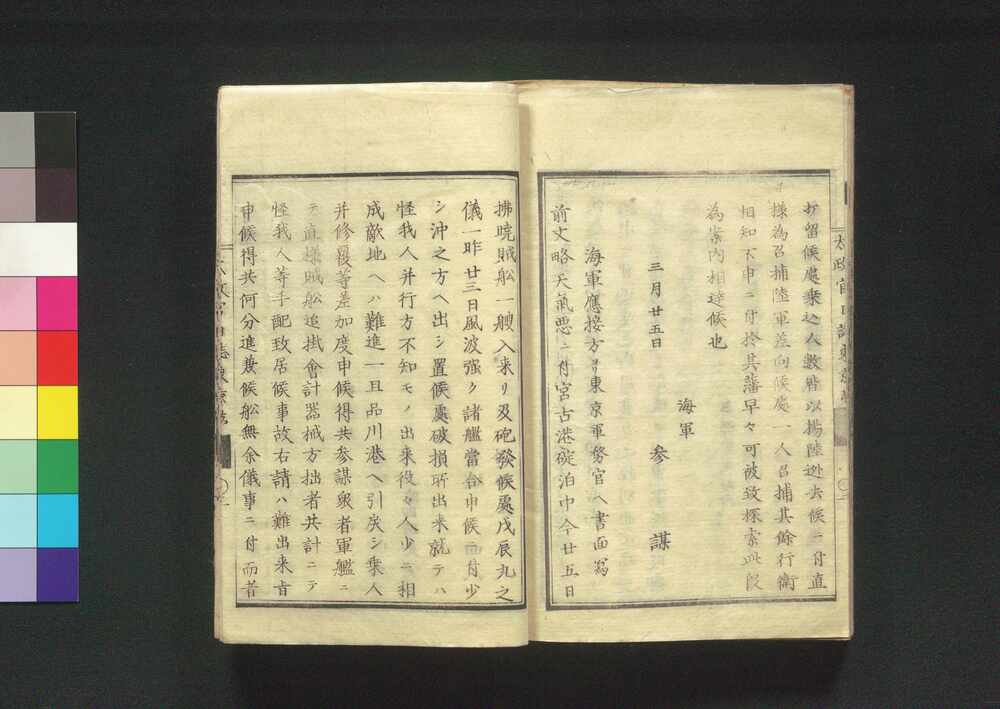 ヲ留候處乗込人数皆以揚陸逃去候ニ付直
様為召捕陸軍差向候處一人召捕其餘行衛
相知不申ニ付於其藩早々可被致探索此段
為案内相達候也
海軍
三月廿五日 參謀
海軍應接方ヨリ東京軍務官ヘ書面寫
前文略天氣悪ニ付宮古港碇泊中今廿五日
拂曉賊舩一艘入来リ及砲發候處戊辰丸之
儀一昨廿三日風波强ク諸艦當合申候ニ付少
シ沖之方ヘ出シ置候處破損所出来就テハ
怪我人并行方不知モノ出来役々人少ニ相
成敵地ヘハ難進一旦品川港ヘ引戻シ乗人
并修覆等差加度申候得共參謀衆者軍艦ニ
テ直様賊舩追掛會計器械方拙者共計ニテ
怪我人等手配致居候事故右請ハ難出来旨
申候得共何分進兼候舩無余儀事ニ付而者